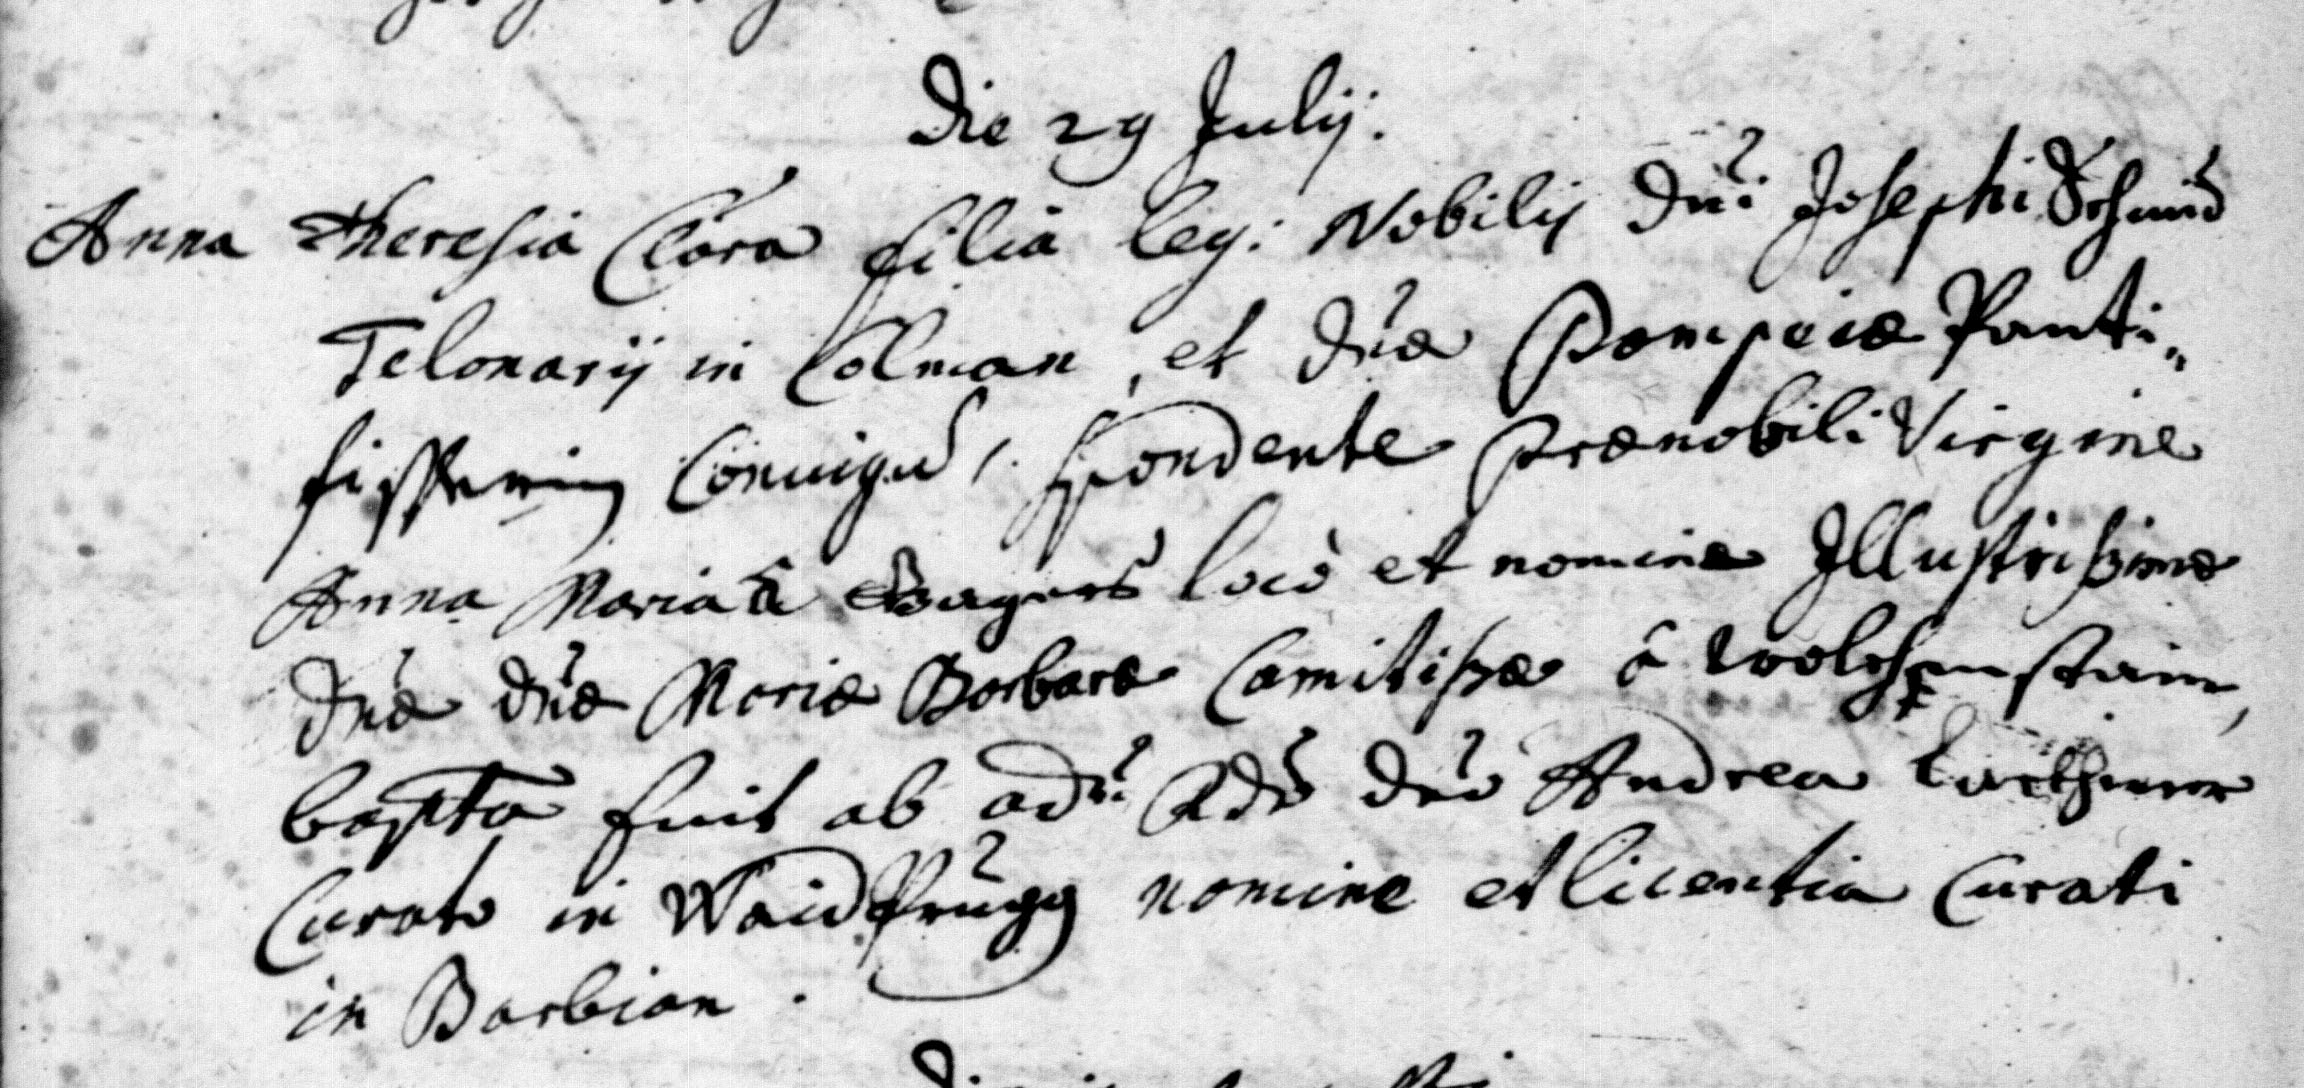 Die 29 Julij.
Anna Theresia Clara filia leg: Nobilis Dni Josephi Schmid
Telonarij in Colman, et Dnæ Pompeiæ Panti„
Coniugũ, spondente Prænobili Virgine
Anna Maria à locò et nomine Illustrissimæ
Dnæ Dnæ Mariæ Barbaræ Comitissæ à Wolchenstain,
bapta fuit ab adm: Rdo Dno Andrea
Curato in Waidprugg nomine et licentia Curati
in Barbian.